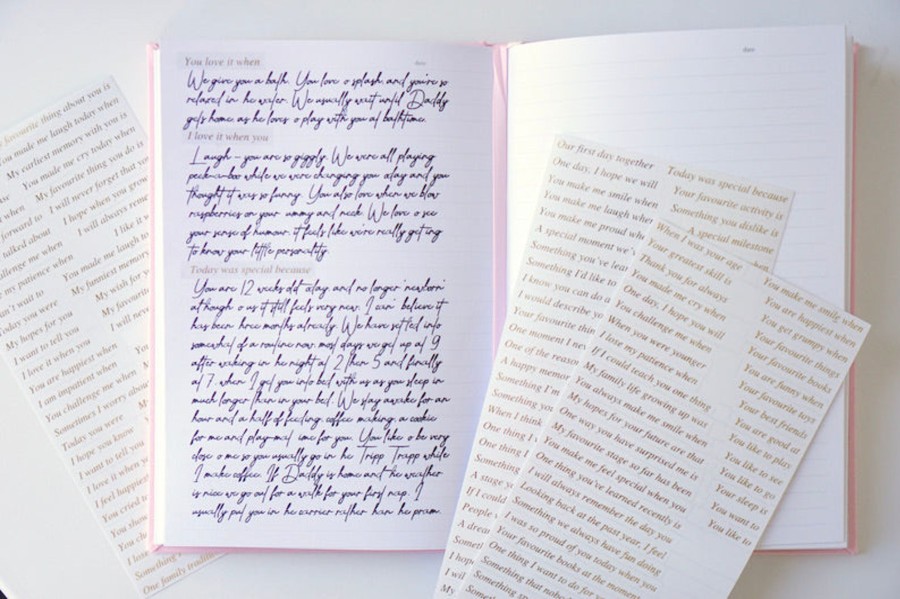 You love it when
date
We give you a bath. You love o splash and you're so
relaxed in he water. We usually wait until Daddy
gets home as he loves o play with you at bathtime.
I love it when you
Laugh - you are so giggly. We were all playing
peek-a-boo while we were changing you oday and you
thought it was so funny. You also love when we blow
raspberries on your ummy and neck. We love o see
your sense of humour, it feels like we're really getting
to know your little personality.
Today was special because
You are 12 weeks old oday and no longer 'newborn'
although o us it still feels very new. I can' believe it
has been hree months already. We have settled into
somewhat of a routine now, most days we get up at 9
after waking in he night at 2 then 5 and finally
at 7, when I get you into bed with us as you sleep in
much longer than in your bed. We stay awake for an
hour and a half of feeding, coffee making, a cookie
for me and play-mat ime for you. You like o be very
close o me so you usually go in he Tripp Trapp while
I make coffee. If Daddy is home and he weather
is nice we go out for a walk for your first nap. I
usually put you in he carrier rather han he pram.
date
favourite thing about you is
You made me laugh today when
My earliest memory with you is
You made me cry today when
My favourite thing you do is
I will never forget that
I hope when you grow
I will always remem
I like it w
You made me laugh to
My funniest memory
My wish for y
My favourite
I will neve
forward to
talked about
challenge me when
my patience when
can't wait to
Today you were
My hopes for you
I want to tell you
I love it when you
You are happiest when
I am impatient when
You challenge me when
Sometimes I worry about
Today you were
I hope you know
I want to tell you
I love it when
I feel happiest
You cried t
You show
You ch
I lose
Something
One family traditi
Our first day together
One day, I hope we will
You make me smile when
You make me laugh when
You make me proud wh
A special moment we'
Something you've lea
Something I'd like to
I know you can do a
I would describe y
Your favourite thin
One moment I nev
One of the reason
A happy memor
Something I'm
Something you
When I think
One thing I
One thing
A stage y
If I could
People
A drea
I hop
I wil
My
Today was special because
Your favourite activity is
Something you dislike is
A special milestone
When I was your age
Your greatest skill is
Thank you for always
You made me cry when
One day, I hope you will
You challenge me when
When you were younger
I lose my patience when
If I could teach you one thing
My family life growing up was
You always make me smile when
My hopes for your future are that
One way you have surprised me is
My favourite stage so far has been
You make me feel special when you
One thing you've learned recently is
I will always remember the day you
Looking back at the past year, I feel
Something we always have fun doing
I was so proud of you today when you
Your favourite books at the moment
One thing I want to do for you
Something that nobo
Something
You make me smile when
You are happiest when
You get grumpy when
Your favourite things
Your favourite books
You are funny when
Your favourite toys
Your best friends
You are good at
You like to play
You like to see
You like to go
Your sleep is
You want to
You like to